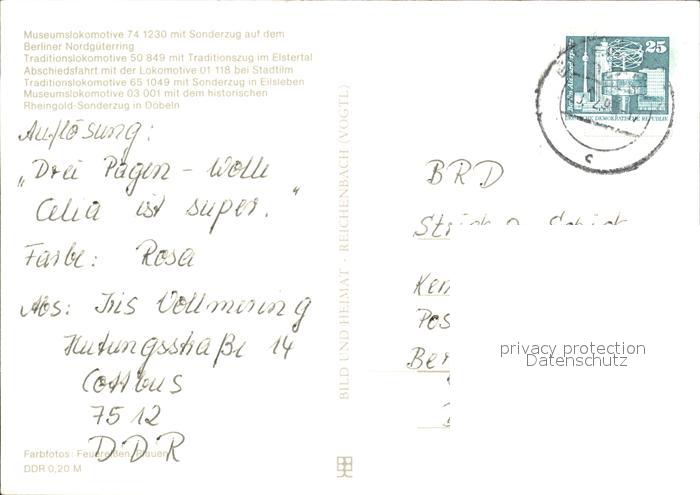 Museumslokomotive 74 1230 mit Sonderzug auf dem
Berliner Nordgüterring
Traditionslokomotive 50 849 mit Traditionszug im Elstertal
Abschiedsfahrt mit der Lokomotive 01 118 bei Stadtilm
Traditionslokomotive 65 1049 mit Sonderzug in Eilsleben
Museumslokomotive 03 001 mit dem historischen
Rheingold-Sonderzug in Döbeln
Auflösung:
„Drei Pagen - Wolle
Celia ist super.“
Farbe: Rosa
Abs: Iris Vollmering
Hutungsstraße 14
Cottbus
7512
DDR
Farbfotos: Feuereißen, Plauen
DDR 0,20 M
BILD UND HEIMAT · REICHENBACH (VOGTL)
25
DEUTSCHE DEMOKRATISCHE REPUBLIK
c
BRD
Pos
privacy protection
Datenschutz